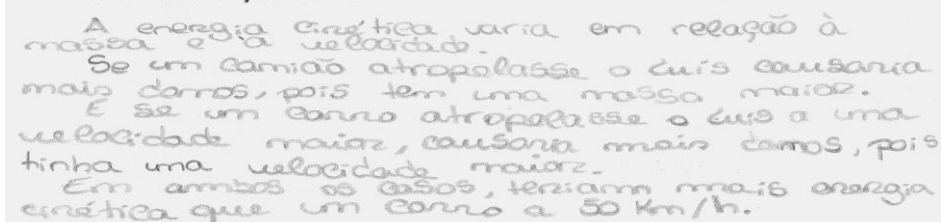 A energia cinética varia em relação à
massa e à velocidade.
Se um camião atropelasse o Luís causaria
mais danos, pois tem uma massa maior.
E se um carro atropelasse o Luís a uma
velocidade maior, causaria mais danos, pois
tinha uma velocidade maior.
Em ambos os casos, teriam mais energia
cinética que um carro a 50 Km/h.